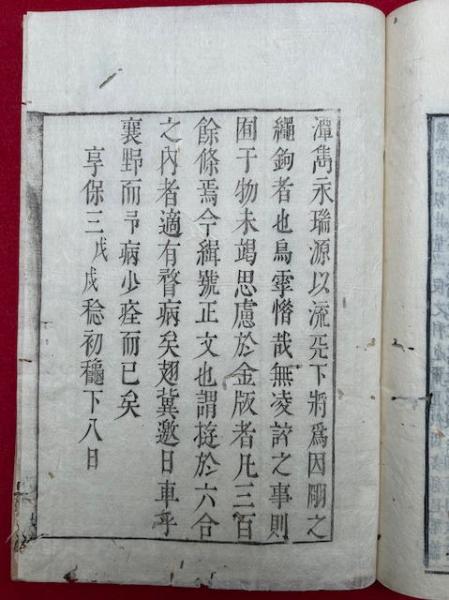 潭雋永瑞源以流旡下將爲因剛之
繩鉤者也烏虖憯哉無凌誶之事則
囿于物未竭思慮於金版者凡三百
餘條焉今緝號正文也謂挺於六合
之內者適有瞀病矣翅冀邀日車乎
襄野而予病少痊而已矣
享保三戊戌稔初龝下八日